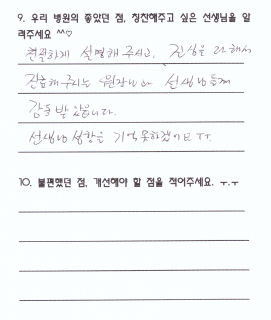 9. 우리 병원의 좋았던 점, 칭찬해주고 싶은 선생님을 알
려주세요 ^^♡
친절하게 설명해 주시고, 진심을 다해서
진료해 주시는 원장님과 선생님들께
감동 받았습니다.
선생님 성함을 기억못하겠어요 ㅠㅠ
10. 불편했던 점, 개선해야 할 점을 적어주세요. ㅜ.ㅜ